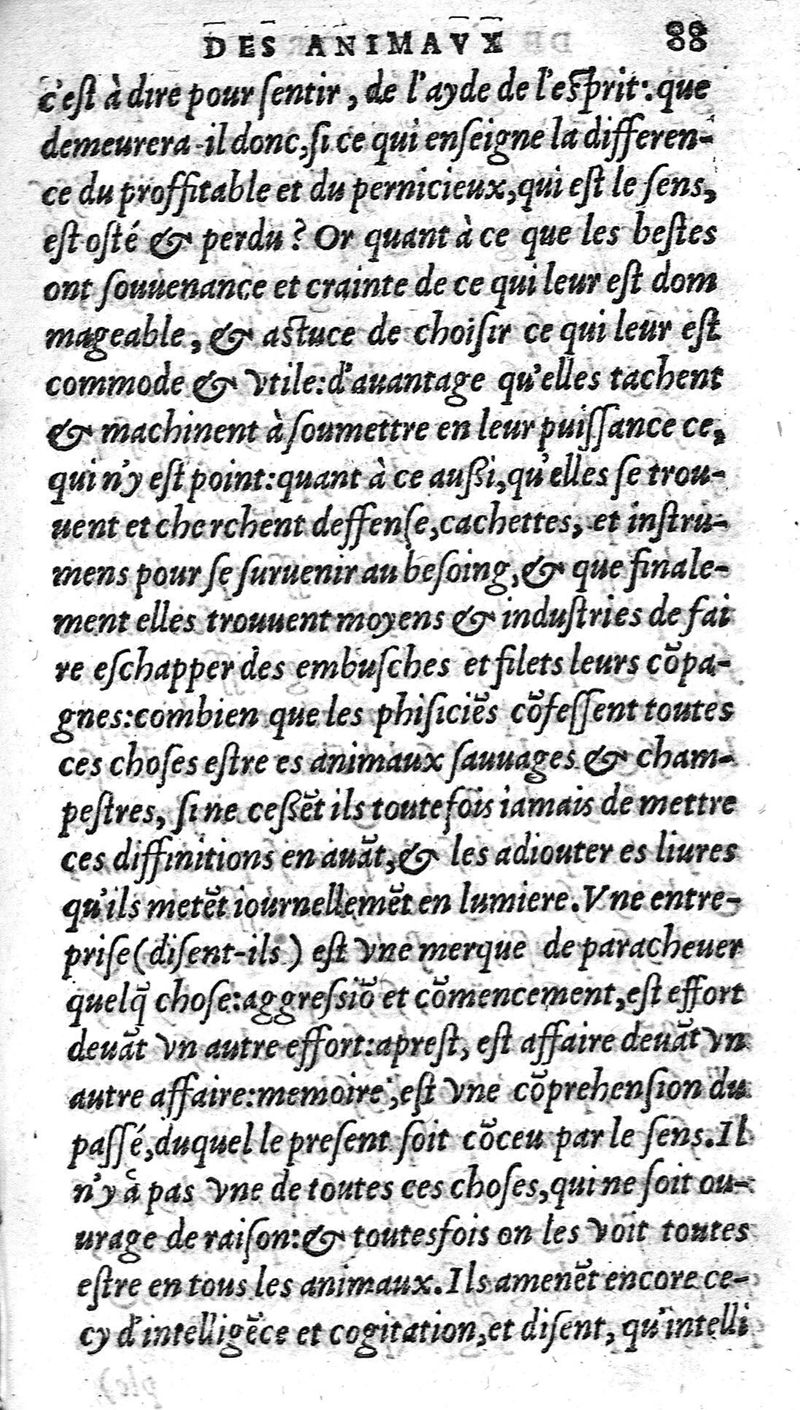 DES ANIMAVX 88
c'eſt à dire pour ſentir, de l'ayde de l'eſprit: que
demeurera-il donc, ſi ce qui enſeigne la differen-
ce du proffitable et du pernicieux, qui eſt le ſens,
eſt oſté & perdu? Or quant à ce que les beſtes
ont ſouuenance et crainte de ce qui leur eſt dom
mageable, & aſtuce de choiſir ce qui leur eſt
commode & vtile: d'auantage qu'elles tachent
& machinent à ſoumettre en leur puiſſance ce,
qui n'y eſt point: quant à ce auſſi, qu'elles ſe trou-
uent et cherchent deffenſe, cachettes, et inſtru-
mens pour ſe ſuruenir au beſoing, & que finale-
ment elles trouuent moyens & induſtries de fai
re eſchapper des embuſches et filets leurs cõpa-
gnes: combien que les phiſiciẽs cõfeſſent toutes
ces choſes eſtre es animaux ſauuages & cham-
peſtres, ſi ne ceſſẽt ils toutefois iamais de mettre
ces diffinitions en auãt, & les adiouter es liures
qu'ils metẽt iournellemẽt en lumiere. Vne entre-
priſe (diſent-ils) eſt vne merque de paracheuer
quelq̃ choſe: aggreſſiõ et cõmencement, eſt effort
deuãt vn autre effort: apreſt, eſt affaire deuãt vn
autre affaire: memoire, eſt vne cõprehenſion du
paſſé, duquel le preſent ſoit cõceu par le ſens. Il
n'y à pas vne de toutes ces choſes, qui ne ſoit ou-
urage de raiſon: & toutesfois on les voit toutes
eſtre en tous les animaux. Ils amenẽt encore ce-
cy d'intelligẽce et cogitation, et diſent, qu'intelli